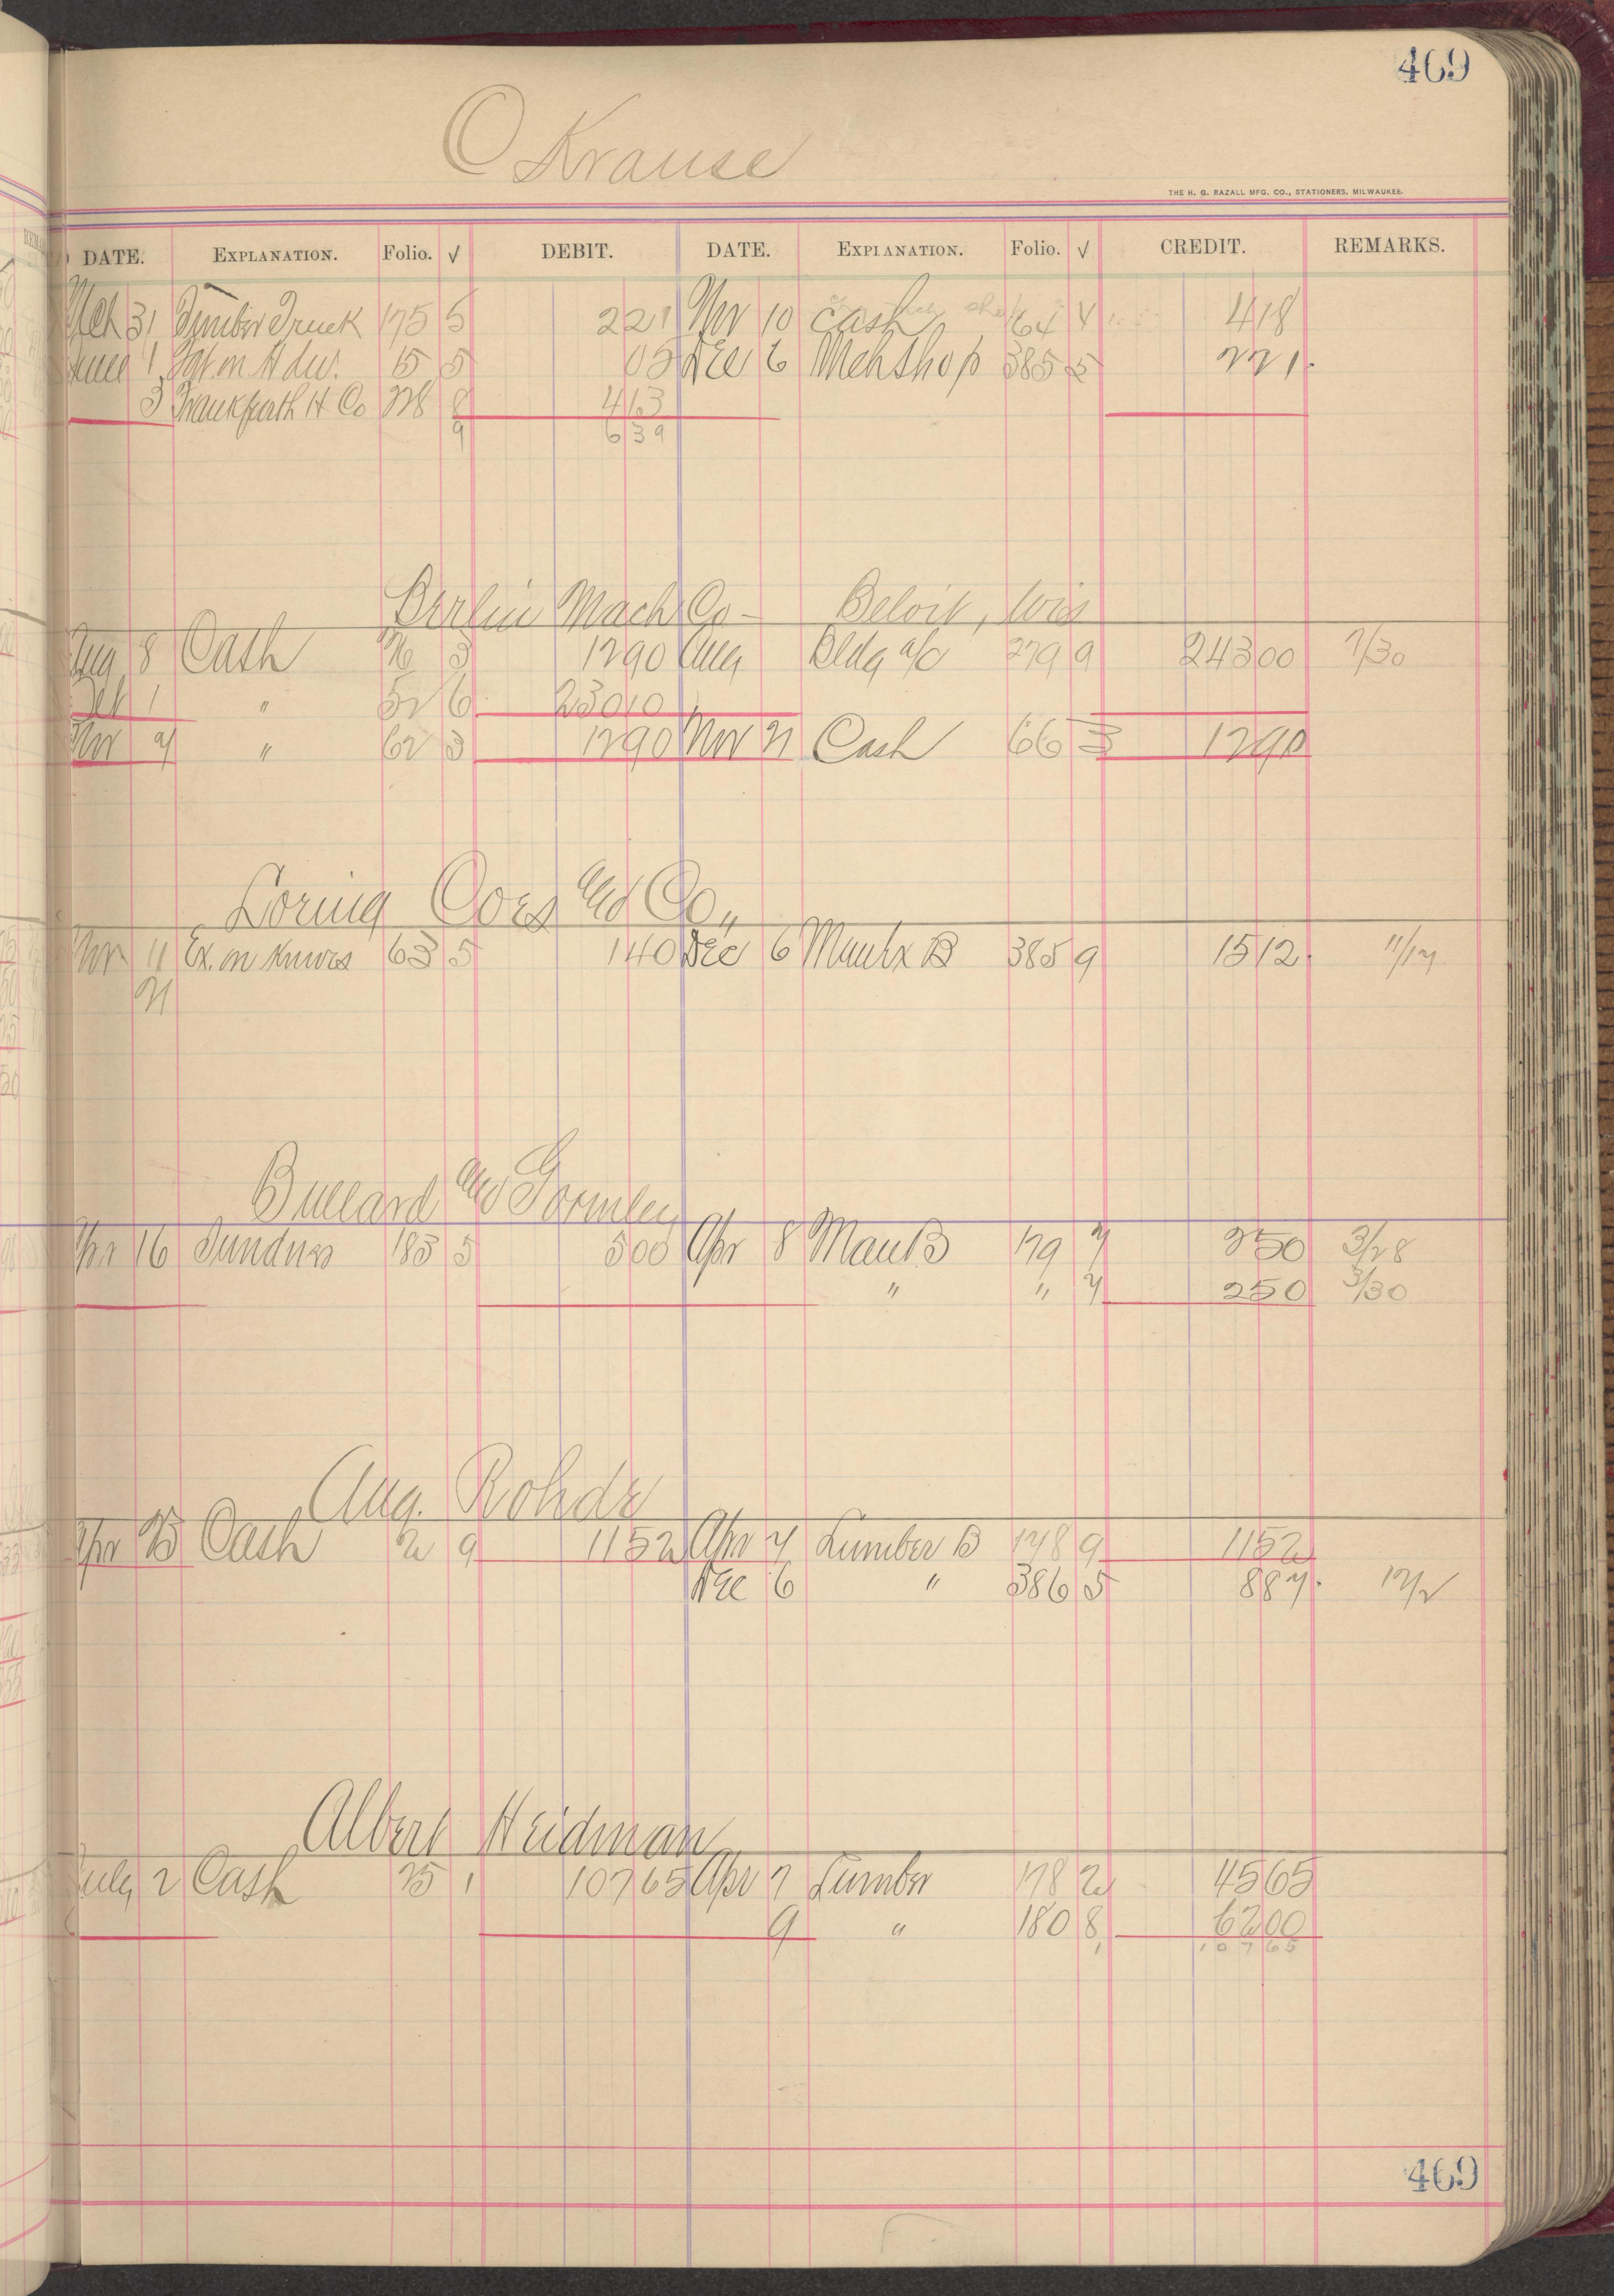 469
O Krause
THE H. G. RAZALL MFG. CO., STATIONERS, MILWAUKEE.
DATE. EXPLANATION. Folio. √ DEBIT. DATE. EXPLANATION. Folio. √ CREDIT. REMARKS.
Mch 31 Timber Truck 175 5 221 Nov 10 Cash 64 4 418
June 1 on Hdw. 15 5 05 Dec 6 Mchshop 385 5 221
3 Frankfurth H Co 228 8 413
9 639
Berlin Mach Co - Beloit, Wis
Aug 8 Cash 26 3 1290 Aug Bldg a/c 279 9 24300 7/30
1 " 52 6 23010
Nov 7 " 62 3 1290 Nov 21 Cash 66 3 1290
Loring Coes and Co,,
Nov 11 Ex. on Knives 63 5 140 Dec 6 Mautz B 385 9 1512 11/17
21
Bullard and Gormley
Apr 16 Sundries 185 5 500 Apr 8 Mau B 179 7 250 3/28
" " 7 250 3/30
Aug. Rohde
Apr 23 Cash 2 9 1152 Apr 7 Lumber B 178 9 1152
Dec 6 " 386 5 887 12/2
Albert Heidman
July 2 Cash 25 1 10765 Apr 7 Lumber 178 2 4565
9 " 180 8 6200
1 10765
469